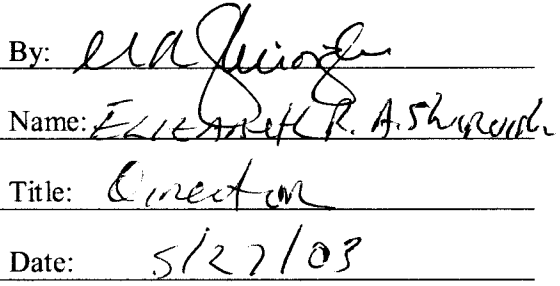 By:
Name: ELIZABETH R. A.
Title: Director
Date: 5/27/03